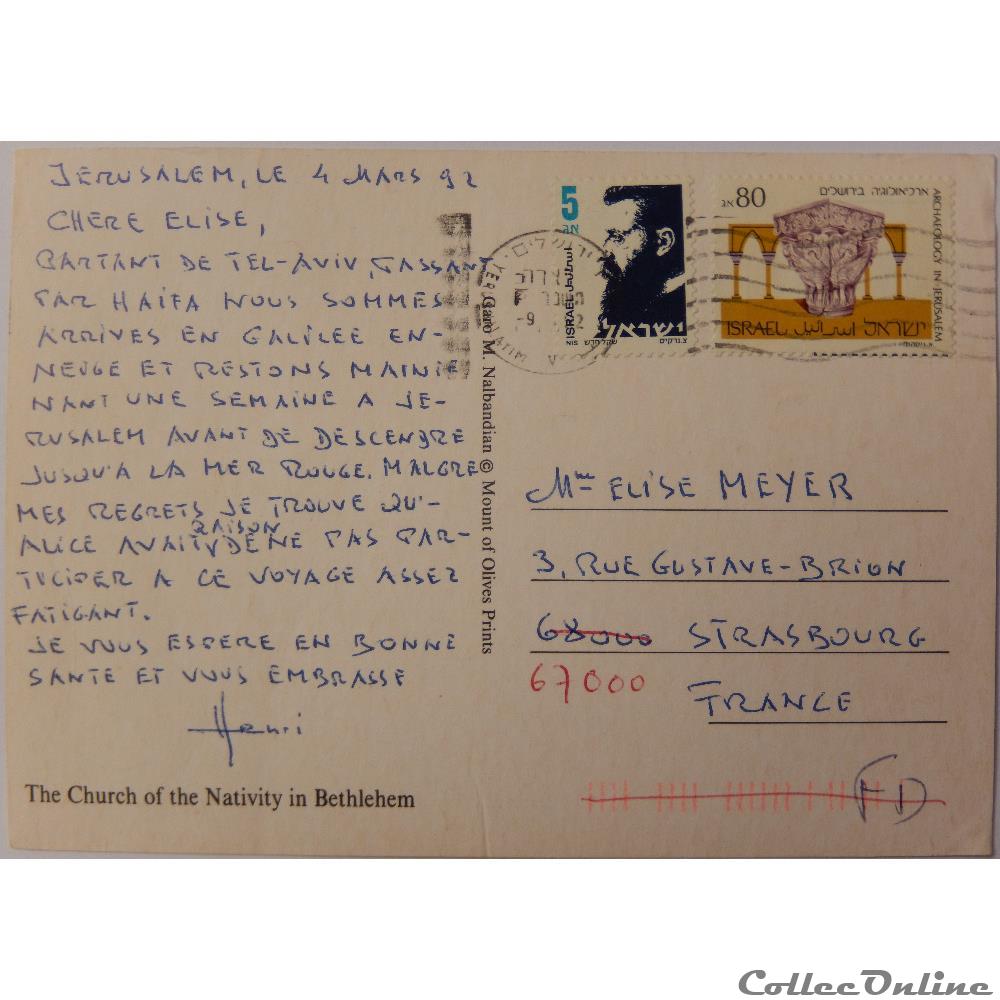 JERUSALEM, LE 4 MARS 92
CHERE ELISE,
PARTANT DE TEL-AVIV, PASSANT
PAR HAIFA NOUS SOMMES
ARRIVES EN GALILEE EN-
NEIGE ET RESTONS MAINTE
NANT UNE SEMAINE A JE-
RUSALEM AVANT DE DESCENDRE
JUSQU'A LA MER ROUGE. MALGRE
MES REGRETS JE TROUVE QU'-
RAISON
ALICE AVAIT DE NE PAS PAR-
TICIPER A CE VOYAGE ASSEZ
FATIGANT.
JE VOUS ESPERE EN BONNE
SANTE ET VOUS EMBRASSE
Henri
The Church of the Nativity in Bethlehem
Garo M. Nalbandian © Mount of Olives Prints
5
אג
ISRAEL اسرائيل
ישראל
NIS שקל חדש
80 אג
ארכיאולוגיה בירושלים
ARCHAEOLOGY IN JERUSALEM
ISRAEL اسرائيل ישראל
ירושלים
YERUSHALAYIM
-9
Mme ELISE MEYER
3, RUE GUSTAVE-BRION
68000 STRASBOURG
67000
FRANCE
FD
CollecOnline